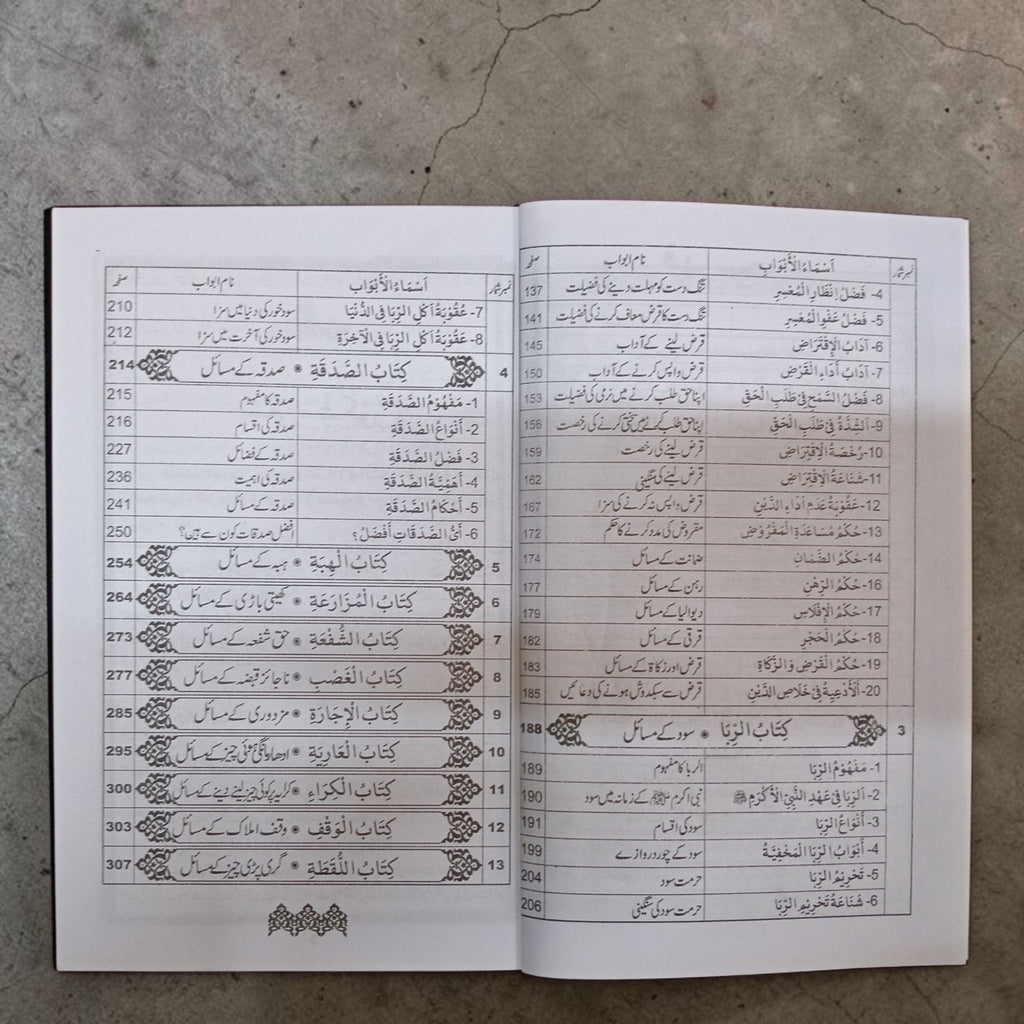 نمبر شمار اَسْمَاءُ الْأَبْوَابِ نام ابواب صفحہ
4- فَضْلُ اِنْظَارِ الْمُعْسِرِ تنگ دست کو مہلت دینے کی فضیلت 137
5- فَضْلُ عَفْوِ الْمُعْسِرِ تنگ دست کا قرض معاف کرنے کی فضیلت 141
6- آدَابُ الْاِقْتِرَاضِ قرض لینے کے آداب 145
7- آدَابُ اَدَاءِ الْقَرْضِ قرض واپس کرنے کے آداب 150
8- فَضْلُ السَّمْحِ فِیْ طَلَبِ الْحَقِّ اپنا حق طلب کرنے میں نرمی کی فضیلت 153
9- اَلشِّدَّةُ فِیْ طَلَبِ الْحَقِّ اپنا حق طلب کرنے میں سختی کرنے کی رخصت 156
10- رُخْصَةُ الْاِقْتِرَاضِ قرض لینے کی رخصت 159
11- شَنَاعَةُ الْاِقْتِرَاضِ قرض لینے کی سنگینی 162
12- عَقُوْبَةُ عَدَمِ اَدَاءِ الدَّيْنِ قرض واپس نہ کرنے کی سزا 167
13- حُكْمُ مُسَاعَدَةِ الْمَقْرُوْضِ مقروض کی مدد کرنے کا حکم 172
14- حُكْمُ الضَّمَانِ ضمانت کے مسائل 174
16- حُكْمُ الرَّهْنِ رہن کے مسائل 177
17- حُكْمُ الْاِفْلَاسِ دیوالیا کے مسائل 179
18- حُكْمُ الْحَجْرِ قرقی کے مسائل 182
19- حُكْمُ الْقَرْضِ وَالزَّكَاةِ قرض اور زکاۃ کے مسائل 183
20- اَلْأَدْعِيَةُ فِیْ خَلَاصِ الدَّيْنِ قرض سے سبکدوش ہونے کی دعائیں 185
3 كِتَابُ الرِّبَا ٭ سود کے مسائل 188
1- مَفْهُوْمُ الرِّبَا الربا کا مفہوم 189
2- اَلرِّبَا فِیْ عَهْدِ النَّبِیِّ الْاَكْرَمِ ﷺ نبی اکرم ﷺ کے زمانہ میں سود 190
3- أَنْوَاعُ الرِّبَا سود کی اقسام 191
4- أَبْوَابُ الرِّبَا الْمَخْفِيَّةُ سود کے چور دروازے 199
5- تَحْرِيْمُ الرِّبَا حرمت سود 204
6- شَنَاعَةُ تَحْرِيْمِ الرِّبَا حرمت سود کی سنگینی 206
نمبر شمار اَسْمَاءُ الْأَبْوَابِ نام ابواب صفحہ
7- عُقُوْبَةُ اَكْلِ الرِّبَا فِی الدُّنْيَا سود خور کی دنیا میں سزا 210
8- عَقُوْبَةُ اَكْلِ الرِّبَا فِی الْآخِرَةِ سود خور کی آخرت میں سزا 212
4 كِتَابُ الصَّدَقَةِ ٭ صدقہ کے مسائل 214
1- مَفْهُوْمُ الصَّدَقَةِ صدقہ کا مفہوم 215
2- أَنْوَاعُ الصَّدَقَةِ صدقہ کی اقسام 216
3- فَضْلُ الصَّدَقَةِ صدقہ کے فضائل 227
4- اَهَمِّيَّةُ الصَّدَقَةِ صدقہ کی اہمیت 236
5- أَحْكَامُ الصَّدَقَةِ صدقہ کے مسائل 241
6- أَیُّ الصَّدَقَاتِ أَفْضَلُ؟ افضل صدقات کون سے ہیں؟ 250
5 كِتَابُ الْهِبَةِ ٭ ہبہ کے مسائل 254
6 كِتَابُ الْمُزَارَعَةِ ٭ کھیتی باڑی کے مسائل 264
7 كِتَابُ الشُّفْعَةِ ٭ حق شفعہ کے مسائل 273
8 كِتَابُ الْغَصْبِ ٭ ناجائز قبضہ کے مسائل 277
9 كِتَابُ الْاِجَارَةِ ٭ مزدوری کے مسائل 285
10 كِتَابُ الْعَارِيَةِ ٭ ادھار مانگی ہوئی چیز کے مسائل 295
11 كِتَابُ الْكِرَاءِ ٭ کرایہ پر کوئی چیز لینے دینے کے مسائل 300
12 كِتَابُ الْوَقْفِ ٭ وقف املاک کے مسائل 303
13 كِتَابُ اللُّقَطَةِ ٭ گری پڑی چیز کے مسائل 307